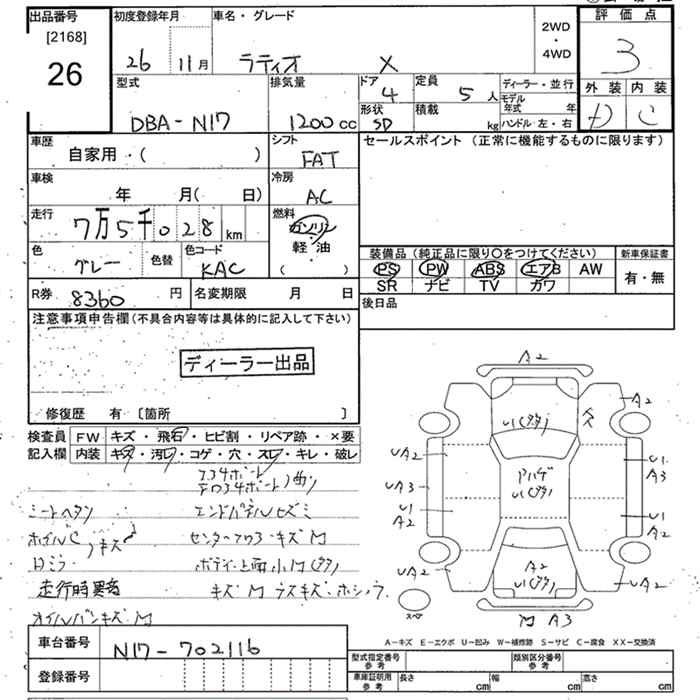 出品番号 初度登録年月 車名・グレード 2WD・4WD 評価点
[2168]
26 26 11月 ラティオ X 3
型式 排気量 ドア 4 定員 5人 ディーラー・並行 外装 内装
DBA-N17 1200cc 形状 SD 積載 kg モデル年式 年 D C
ハンドル 左・右
車歴 自家用・( ) シフト FAT セールスポイント (正常に機能するものに限ります)
車検 年 月( 日) 冷房 AC
走行 7万5千028km 燃料 ガソリン・軽油 ( )
色 グレー 色替 色コード KAC 装備品(純正品に限り○をつけてください) 新車保証書
PS PW ABS エアB AW 有・無
SR ナビ TV カワ
R券 8360円 名変期限 月 日 後日品
注意事項申告欄(不具合内容等は具体的に記入して下さい)
ディーラー出品
修復歴 有 〔箇所 〕
検査員 FW キズ・飛石・ヒビ割・リペア跡・×要
記入欄 内装 キズ・汚レ・コゲ・穴・スレ・キレ・破レ
シートヘタリ エンドパネルヒズミ
ホイルC,キズ センターフロアキズM
ボディ上面小M(多)
走行時異音
オイルパンキズM
A2
U1(多)
A2
UA2 U1 A3
アハゲ U1(多)
UA3
U1 A2
U1 A2
UA2 A2 U1(多) UA2
スペア M A3
A-キズ E-エクボ U-凹み W-補修跡 S-サビ C-腐食 XX-交換済
車台番号 N17-702116
登録番号
型式指定番号 参考 類別区分番号 参考
車庫証明用 参考 長さ cm 幅 cm 高さ cm